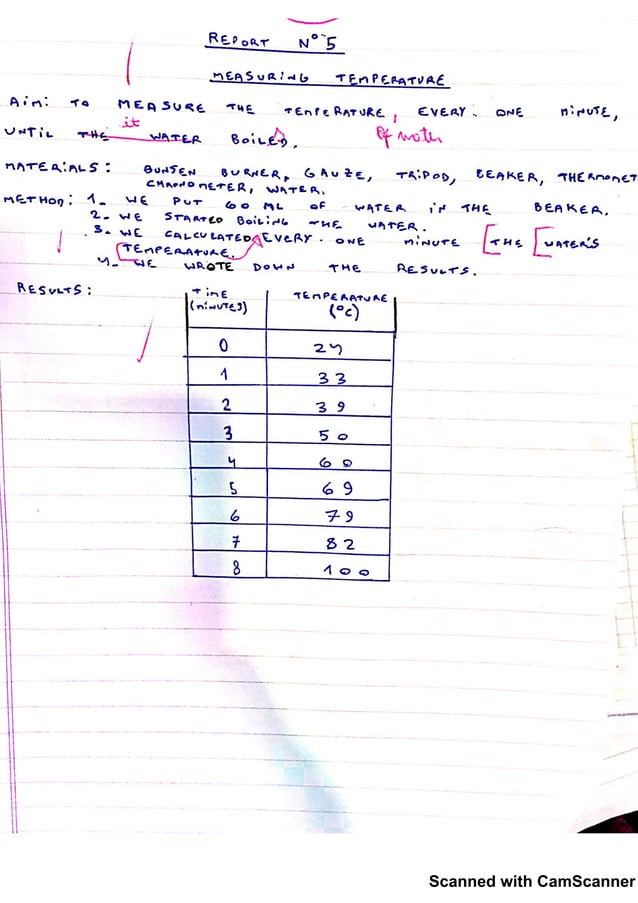 REPORT Nº 5
MEASURING TEMPERATURE
Aim: TO MEASURE THE TEMPERATURE, EVERY ONE MINUTE,
it
UNTIL THE WATER BOILED. Of water
MATERIALS: BUNSEN BURNER, GAUZE, TRIPOD, BEAKER, THERMOMET
CHRONOMETER, WATER.
METHOD: 1_ WE PUT 60 ML OF WATER IN THE BEAKER.
2_ WE STARTED BOILING THE WATER.
3_ WE CALCULATED EVERY ONE MINUTE [THE [WATER'S
[TEMPERATURE.
4_ WE WROTE DOWN THE RESULTS.
RESULTS:
TIME (MINUTES) TEMPERATURE (°C)
0 24
1 33
2 39
3 50
4 60
5 69
6 79
7 82
8 100
Scanned with CamScanner